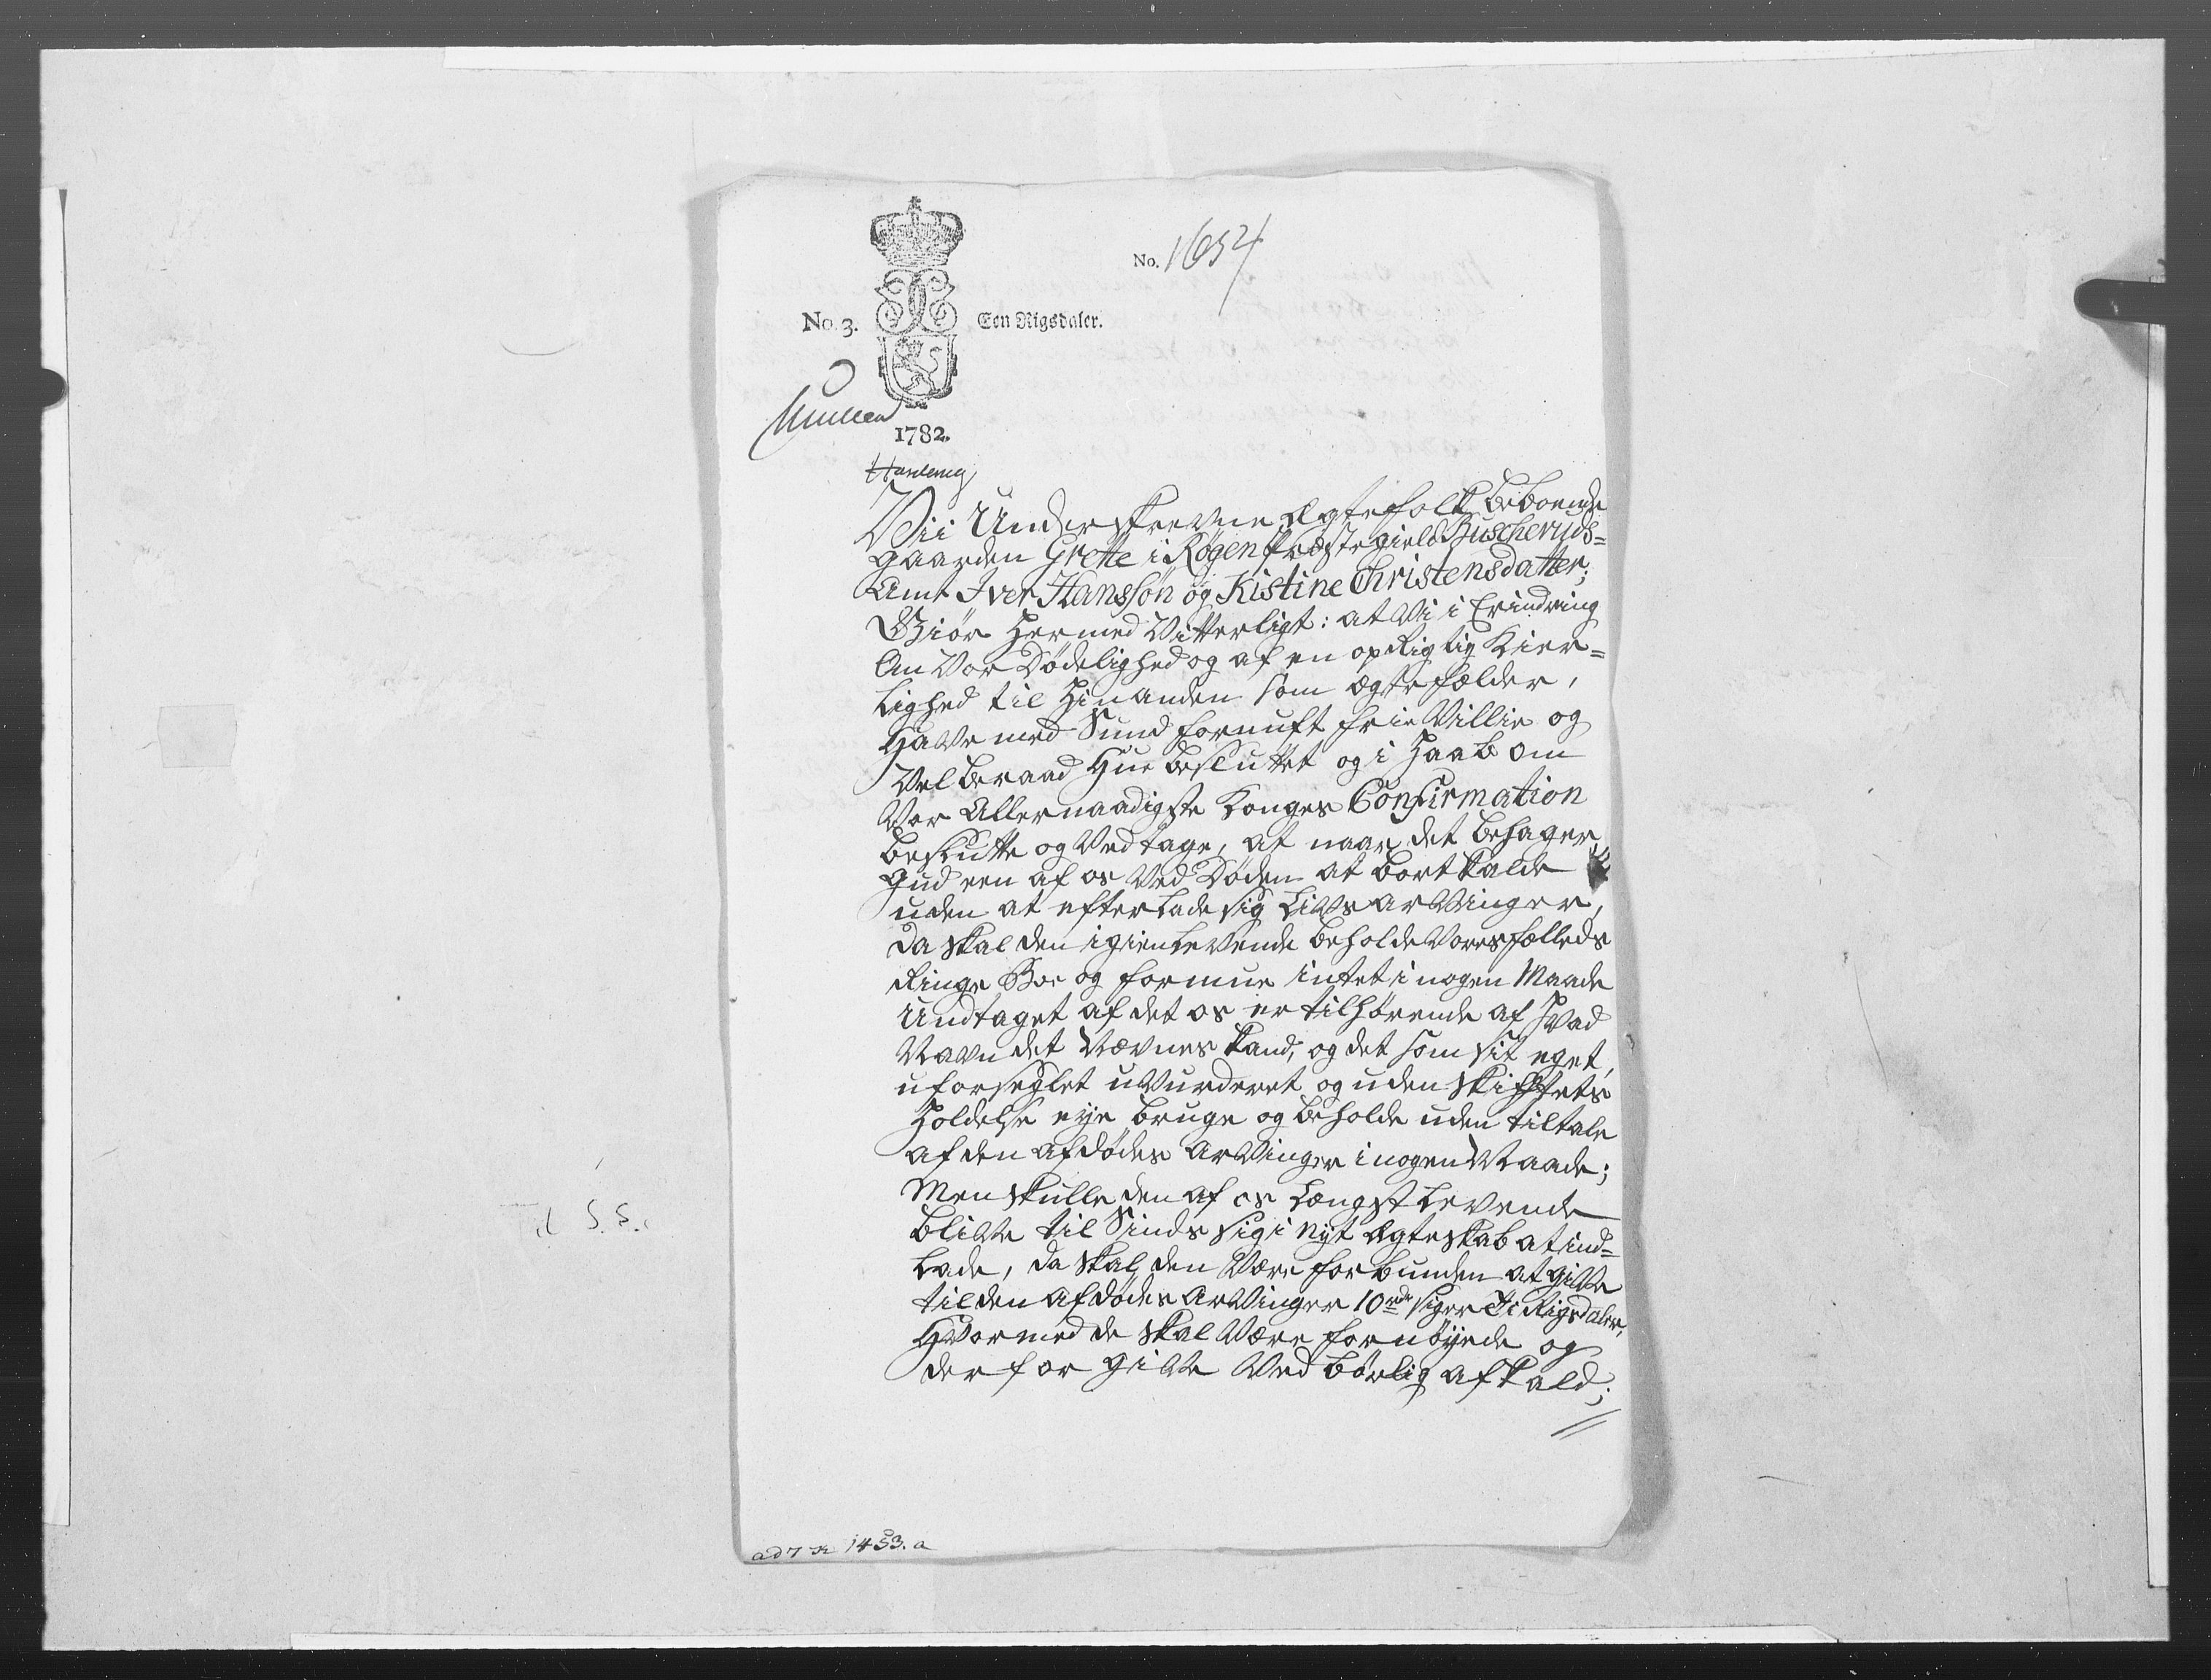 No. 1654
No. 3. Een Rigsdaler.
1782.
Vii Underskrevne Ægtefolk beboende
gaarden Grette i Røgen Præstegield Buscheruds=
Amt Iver Hanssøn og Kistine Christensdatter;
Giør Hermed Vitterligt: at Vi i Erindring
Om Vor Dødelighed og af en oprigtig Kier=
lighed til Hinanden som ægtefælder,
Have med Sund fornuft frie Villie og
Vel beraad Hue besluttet og i Haab om
Vor Allernaadigste Konges Confirmation
beslutte og Vedtage, at naar det behager
Gud een af os Ved Døden at bortkalde
uden at efterlade sig Livs arvinger,
da skal den igienlevende beholde Vores fælleds
Ringe Boe og formue intet i nogen Maade
Undtaget af det os er tilhørende af Hvad
Navn det Nævnes kand, og det som sit eget,
uforseglet uVurderet og uden skifftets
Holdelse eye bruge og beholde uden tiltale
af den afdødes Arvinger i nogen Maade;
Men skulle den af os Længst Levende
blive til Sinds sig i Nyt Ægteskab at ind=
lade, da skal den Være forbunden at give
til den afdødes Arvinger 10 rdr siger Ti Rigsdaler,
Hvormed de skal Være fornøyede og
derfor give Ved børlig afkald;
Til S. S.
ad 7 1453. a